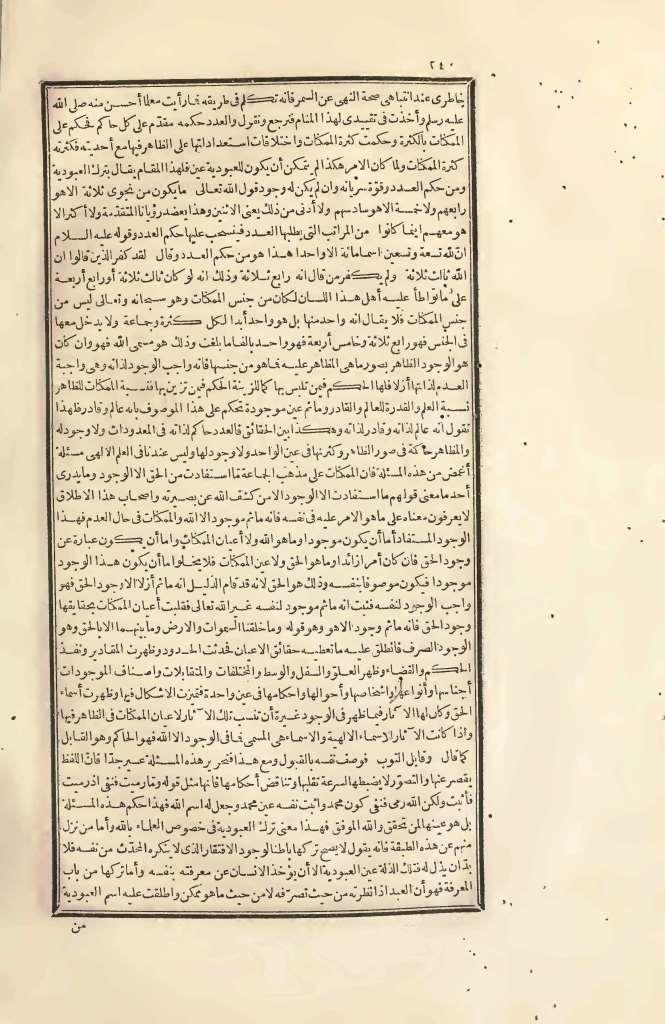 ٢٤٠
خاطرى عند انتباهى صحة النهى عن السمر فانه تكلم فى طريقه فما رأيت معلما أحسن منه صلى الله
عليه وسلم وأخذت فى تقييدى لهذا المنام فنرجع ونقول والعدد حكمه مقدم على كل حاكم فحكم على
الممكنات بالكثرة وحكمت كثرة الممكنات واختلافات استعداداتها على الظاهر فيها مع أحديته فكثرته
كثرة الممكنات ولما كان الامر هكذا لم يتمكن أن يكون للعبودية عين فلهذا المقام يقال بترك العبودية
ومن حكم العدد وقوة سريانه وان لم يكن له وجود قول الله تعالى ما يكون من نجوى ثلاثة الا هو
رابعهم ولا خمسة الا هو سادسهم ولا أدنى من ذلك يعنى الاثنين وهذا يعضد رؤيانا المتقدمة ولا أكثر الا
هو معهم أينما كانوا من المراتب التى يطلبها العدد فينسحب عليها حكم العدد وقوله عليه السلام
ان لله تسعة وتسعين اسما مائة الا واحدا هذا هو من حكم العدد وقال لقد كفر الذين قالوا ان
الله ثالث ثلاثة ولم يكفر من قال انه رابع ثلاثة وذلك انه لو كان ثالث ثلاثة أو رابع أربعة
على ما تواطأ عليه أهل هذا اللسان لكان من جنس الممكنات وهو سبحانه وتعالى ليس من
جنس الممكنات فلا يقال انه واحد منها بل هو واحد أبدا لكل كثرة وجماعة ولا يدخل معها
فى الجنس فهو رابع ثلاثة وخامس أربعة فهو واحد بالغا ما بلغت وذلك هو مسمى الله فهو وان كان
هو الوجود الظاهر بصور ما هى المظاهر عليه فما هو من جنسها فانه واجب الوجود لذاته وهى واجبة
العدم لذاتها أزلا فلها الحكم فيمن تلبس بها كما للزينة الحكم فيمن تزين بها فنسبة الممكنات للظاهر
نسبة العلم والقدرة للعالم والقادر وما ثم عين موجودة تحكم على هذا الموصوف بانه عالم وقادر فلهذا
نقول انه عالم لذاته وقادر لذاته وهكذا بين الحقائق فالعدد حاكم لذاته فى المعدودات ولا وجود له
والمظاهر حاكمة فى صور الظاهر وكثرتها فى عين الواحد ولا وجود لها وليس عندنا فى العلم الالهى مسئلة
أغمض من هذه المسئلة فان الممكنات على مذهب الجماعة ما استفادت من الحق الا الوجود وما يدرى
أحد ما معنى قولهم ما استفادت الا الوجود الا من كشف الله عن بصيرته وأصحاب هذا الاطلاق
لا يعرفون معناه على ما هو الامر عليه فى نفسه فانه ما ثم موجود الا الله والممكنات فى حال العدم فهذا
الوجود المستفاد اما أن يكون موجودا وما هو الله ولا أعيان الممكنات واما أن يكون عبارة عن
وجود الحق فان كان أمرا زائدا وما هو الحق ولا عين الممكنات فلا يخلو اما أن يكون هذا الوجود
موجودا فيكون موصوفا بنفسه وذلك هو الحق لانه قد قام الدليل انه ما ثم أزلا الا وجود الحق فهو
واجب الوجود لنفسه فثبت انه ما ثم موجود لنفسه غير الله تعالى فقبلت أعيان الممكنات بحقايقها
وجود الحق فانه ما ثم وجود الا هو وهو قوله وما خلقنا السموات والارض وما بينهما الا بالحق وهو
الوجود الصرف فانطلق عليه ما تعطيه حقائق الاعيان فحدت الحدود وظهرت المقادير ونفذ
الحكم والقضاء وظهر العلو والسفل والوسط والمختلفات والمتقابلات وأصناف الموجودات
أجناسها وأنواعها وأشخاصها وأحوالها وأحكامها فى عين واحدة فتميزت الاشكال فيها وظهرت أسماء
الحق وكان لها الآثار فيما ظهر فى الوجود غيرة أن تنسب تلك الآثار لاعيان الممكنات فى الظاهر فيها
واذا كانت الآثار للاسماء الالهية والاسماء هى المسمى فما فى الوجود الا الله فهو الحاكم وهو القابل
كما قال وقابل التوب فوصف نفسه بالقبول ومع هذا فتحرير هذه المسئلة عسير جدا فان اللفظ
يقصر عنها والتصور لا يضبطها لسرعة تفلتها وتناقض أحكامها فانها مثل قوله وما رميت فنفى اذ رميت
فأثبت ولكن الله رمى فنفى كون محمد وأثبت نفسه عين محمد وجعل له اسم الله فهذا حكم هذه المسئلة
بل هو عينها لمن تحقق والله الموفق فهذا معنى ترك العبودية فى خصوص العلماء بالله وأما من نزل
منهم عن هذه الطبقة فانه يقول لا يصح تركها باطنا لوجود الافتقار الذى لا ينكره المحدث من نفسه فلا
بد أن يذله فتلك الذلة عين العبودية الا أن يؤخذ الانسان عن معرفته بنفسه وأما تركها من باب
المعرفة فهو أن العبد اذا نظرته من حيث تصرفه لا من حيث ما هو ممكن وأطلقت عليه اسم العبودية
من